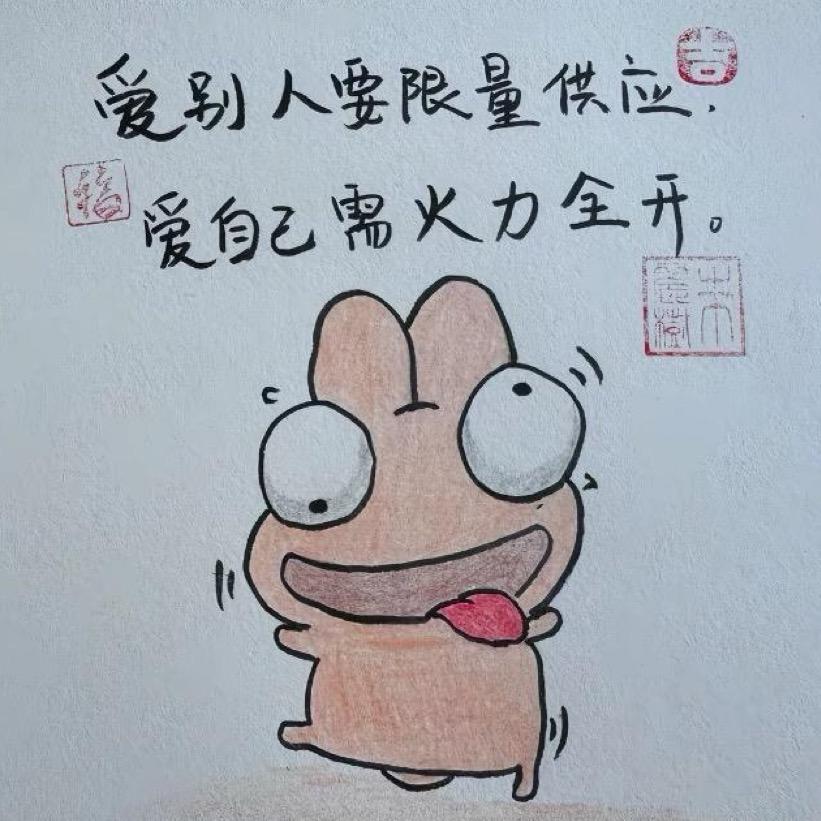 爱别人要限量供应.
爱自己需火力全开。
吉
福